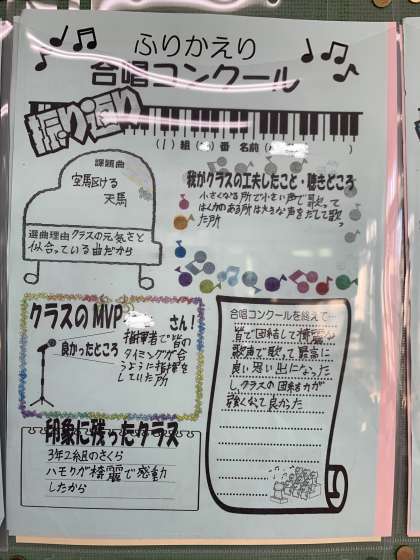 ふりかえり
合唱コンクール
振り返り
(1)組( )番 名前(
課題曲
空駆ける
天馬
選曲理由 クラスの元気さと
似合っている曲だから
我がクラスの工夫したこと・聴きどころ
小さくなる所で小さい声で歌って
はく力のある所は大きな声をだして歌っ
た所
クラスのMVP
さん!
良かったところ
指揮者で皆の
タイミングが合
うように指揮を
していた所
合唱コンクールを終えて…
皆で団結して綺麗な
歌声で歌って最高に
良い思い出になった
し、クラスの団結力が
強くなって良かった
印象に残ったクラス
3年2組のさくら
ハモりが綺麗で感動
したから